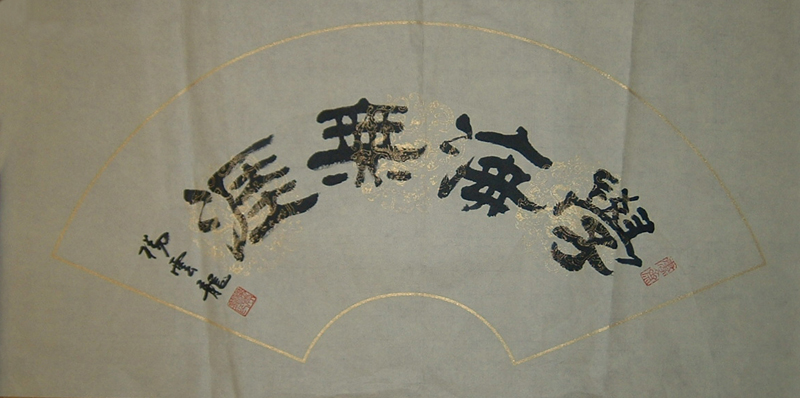 學海無涯
雲龍